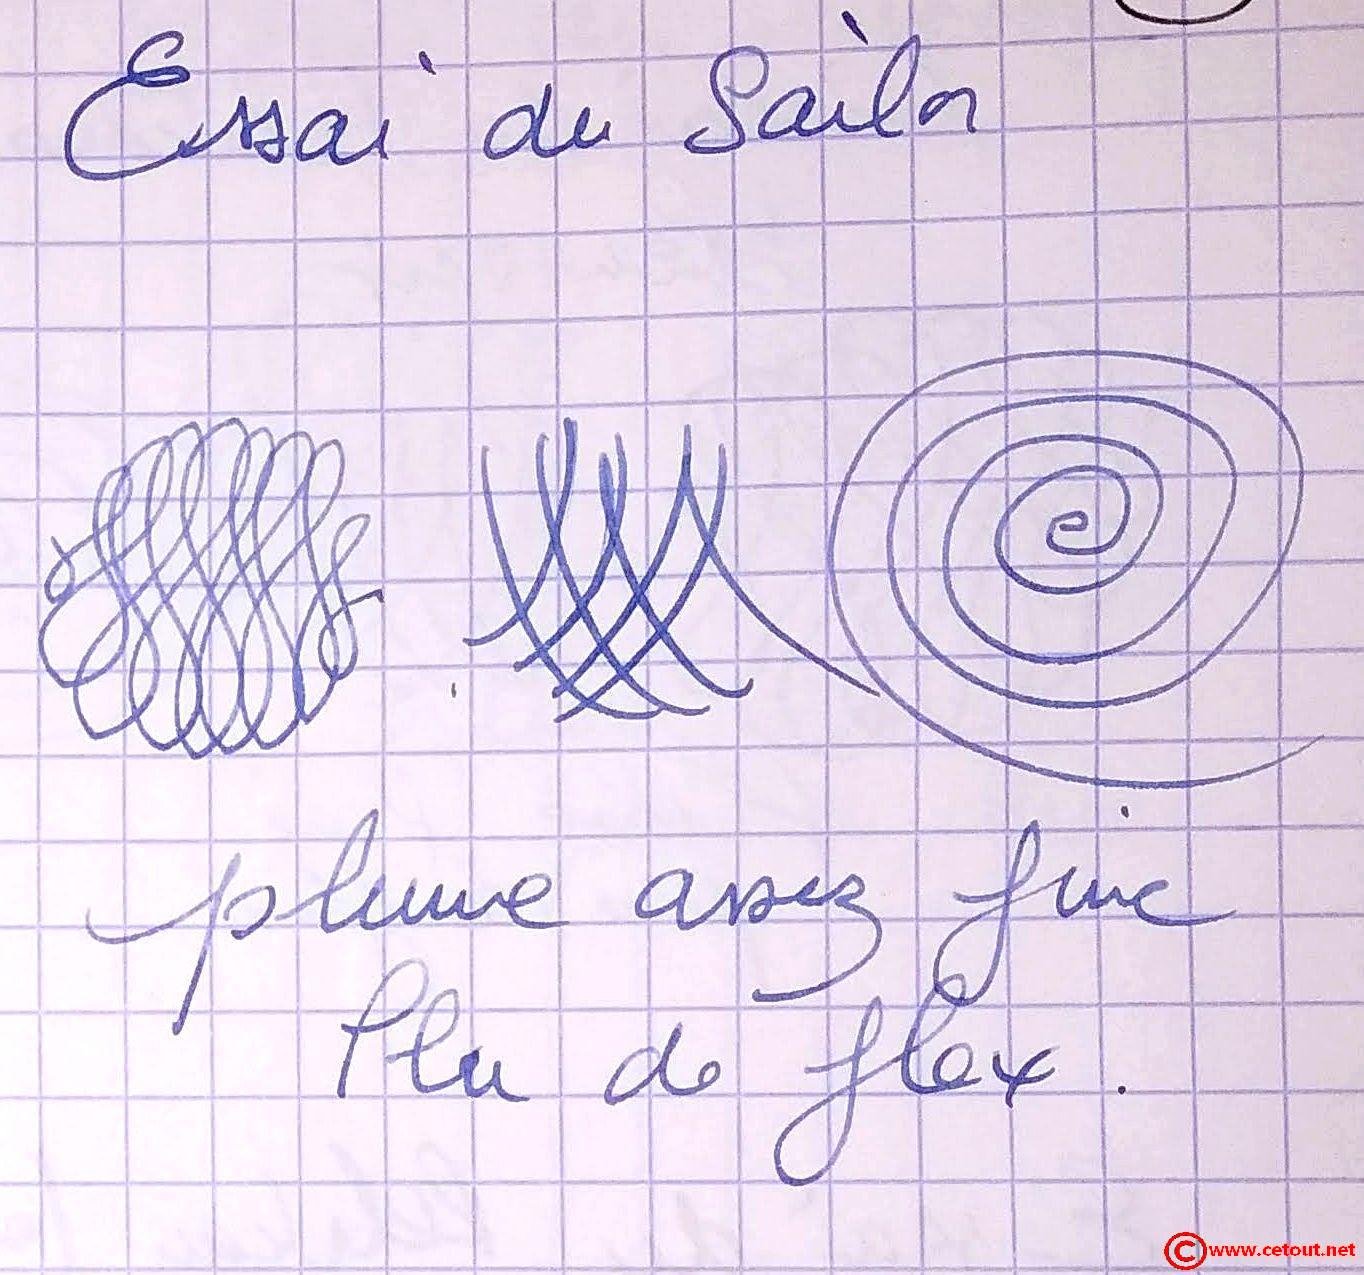 Essai du Sailor
plume assez fine
Plu de flex.
©www.cetout.net